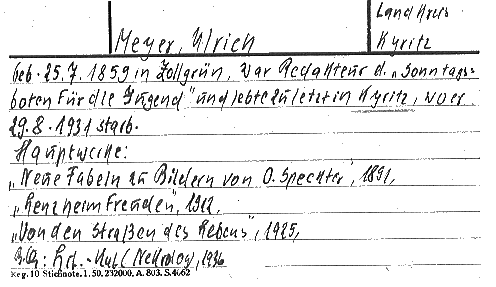 Landkreis
Meyer, Ulrich
Kyritz
geb. 25.7.1859 in Zollgrün, war Redakteur d. „Sonntags=
boten für die Jugend" und lebte zuletzt in Kyritz, wo er
29.8.1931 starb.
Hauptwerke:
„Neue Fabeln zu Bildern von O. Speckter", 1891,
„Herzheimfreuden", 1912,
„Von den Straßen des Lebens", 1925,
(Nekrolog), 1936
Reg. 10 Stichnote. 1. 50. 232000. A. 803. S. 4662